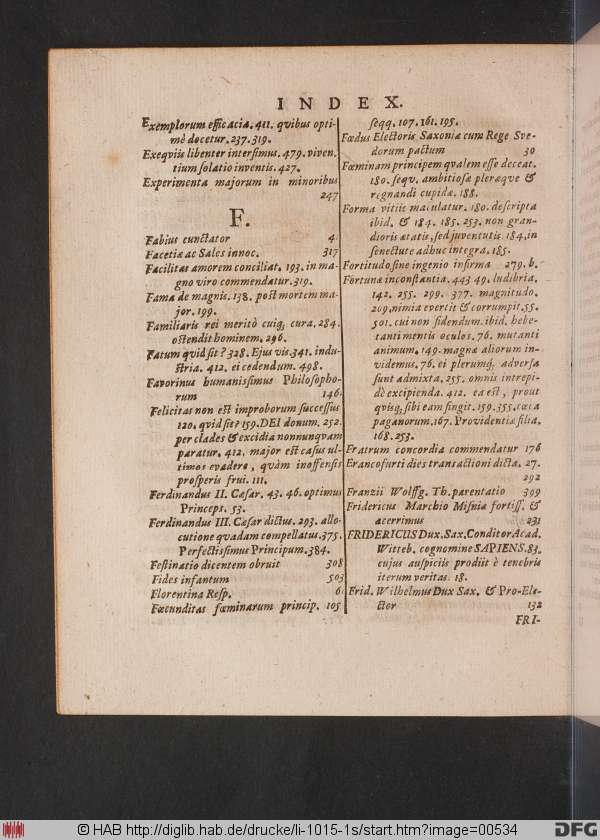 INDEX.
Exemplorum efficacia. 411. quibus opti-
mè docetur. 237. 319.
Exequiis libenter interfimus. 479. viven-
tium solatio inventis. 427.
Experimenta majorum in minoribus
247
F.
Fabius cunctator 4.
Facetiæ ac Sales innoc. 317
Facilitas amorem conciliat. 193. in ma-
gno viro commendatur. 319.
Fama de magnis. 138. post mortem ma-
jor. 199.
Familiaris rei meritò cuiq; cura. 284.
ostendit hominem. 296.
Fatum quid sit? 328. Ejus vis. 341. indu-
stria. 412. ei cedendum. 498.
Favorinus humanissimus Philosopho-
rum 146.
Felicitas non est improborum successus
120. quid sit? 159. DEI donum. 252.
per clades & excidia nonnunquam
paratur. 412. major est casus ul-
timos evadere, quàm inoffensis
prosperis frui. 111.
Ferdinandus II. Cæsar. 43. 46. optimus
Princeps. 53.
Ferdinandus III. Cæsar dictus. 293. allo-
cutione quadam compellatus. 375.
Perfectissimus Principum. 384.
Festinatio dicentem obruit 308
Fides infantum 503
Florentina Resp. 6.
Fœcunditas fœminarum princip. 105
seqq. 107. 161. 195.
Fœdus Electoris Saxoniæ cum Rege Sve-
dorum pactum 30
Fœminam principem qvalem esse deceat.
180. seqv. ambitiosæ pleræqve &
regnandi cupidæ. 188.
Forma vitiis maculatur. 180. descripta
ibid. & 184. 185. 253. non gran-
dioris ætatis, sed juventutis. 184. in
senectute adhuc integra. 185.
Fortitudo sine ingenio infirma 279. b.
Fortunæ inconstantia. 443 49. ludibria.
142. 255. 299. 377. magnitudo.
209. nimia evertit & corrumpit. 55.
501. cui non fidendum. ibid. hebe-
tanti mentis oculos. 76. mutanti
animum. 149. magnæ aliorum in-
videmus. 76. ei plerumq; adversa
sunt admixta. 255. omnis intrepi-
dè excipienda. 412. ea est, prout
quisq; sibi eam fingit. 159. 355. cæca
paganorum. 167. Providentiæ filia.
168. 253.
Fratrum concordia commendatur 176
Francofurti dies transactioni dicta. 27.
292
Franzii Wolffg. Th. parentatio 399
Fridericus Marchio Misniæ fortiss. &
acerrimus 231
FRIDERICUS Dux. Sax. Conditor Acad.
Witteb. cognomine SAPIENS. 83.
cujus auspiciis prodiit è tenebris
iterum veritas. 18.
Frid. Wilhelmus Dux Sax. & Pro-Ele-
ctor 132
FRI-
© HAB http://diglib.hab.de/drucke/li-1015-1s/start.htm?image=00534
DFG